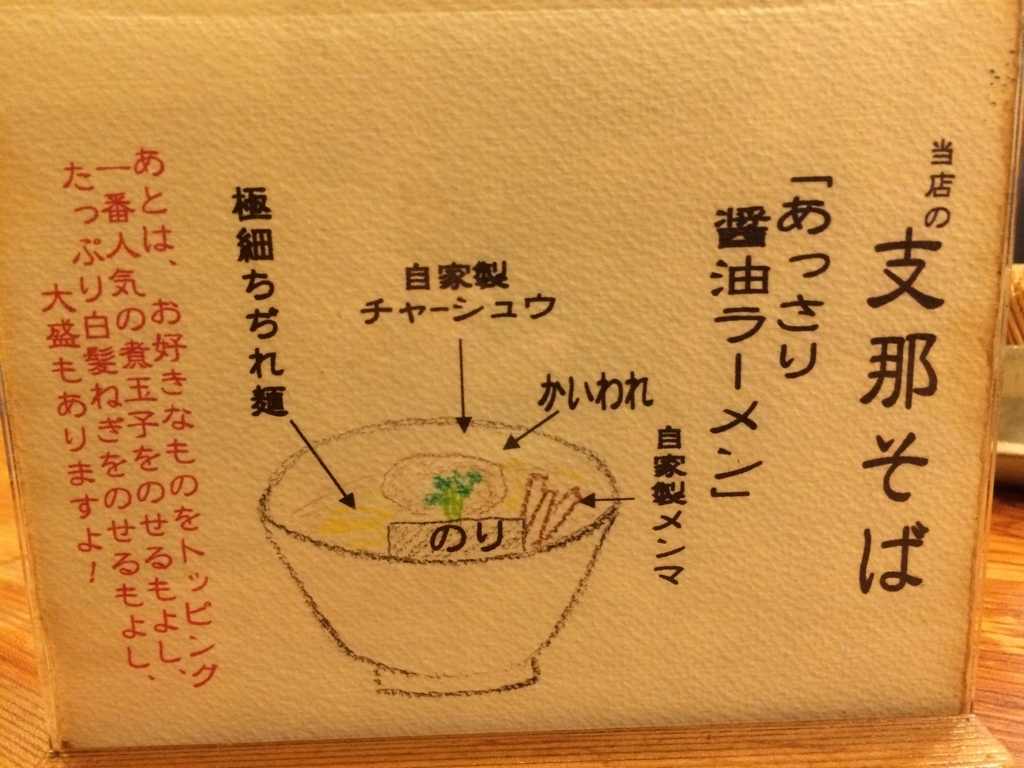 当店の
支那そば
「あっさり
醤油ラーメン」
自家製メンマ
かいわれ
自家製
チャーシュウ
のり
極細ちぢれ麺
あとは、お好きなものをトッピング
一番人気の煮玉子をのせるもよし、
たっぷり白髪ねぎをのせるもよし、
大盛もありますよ!